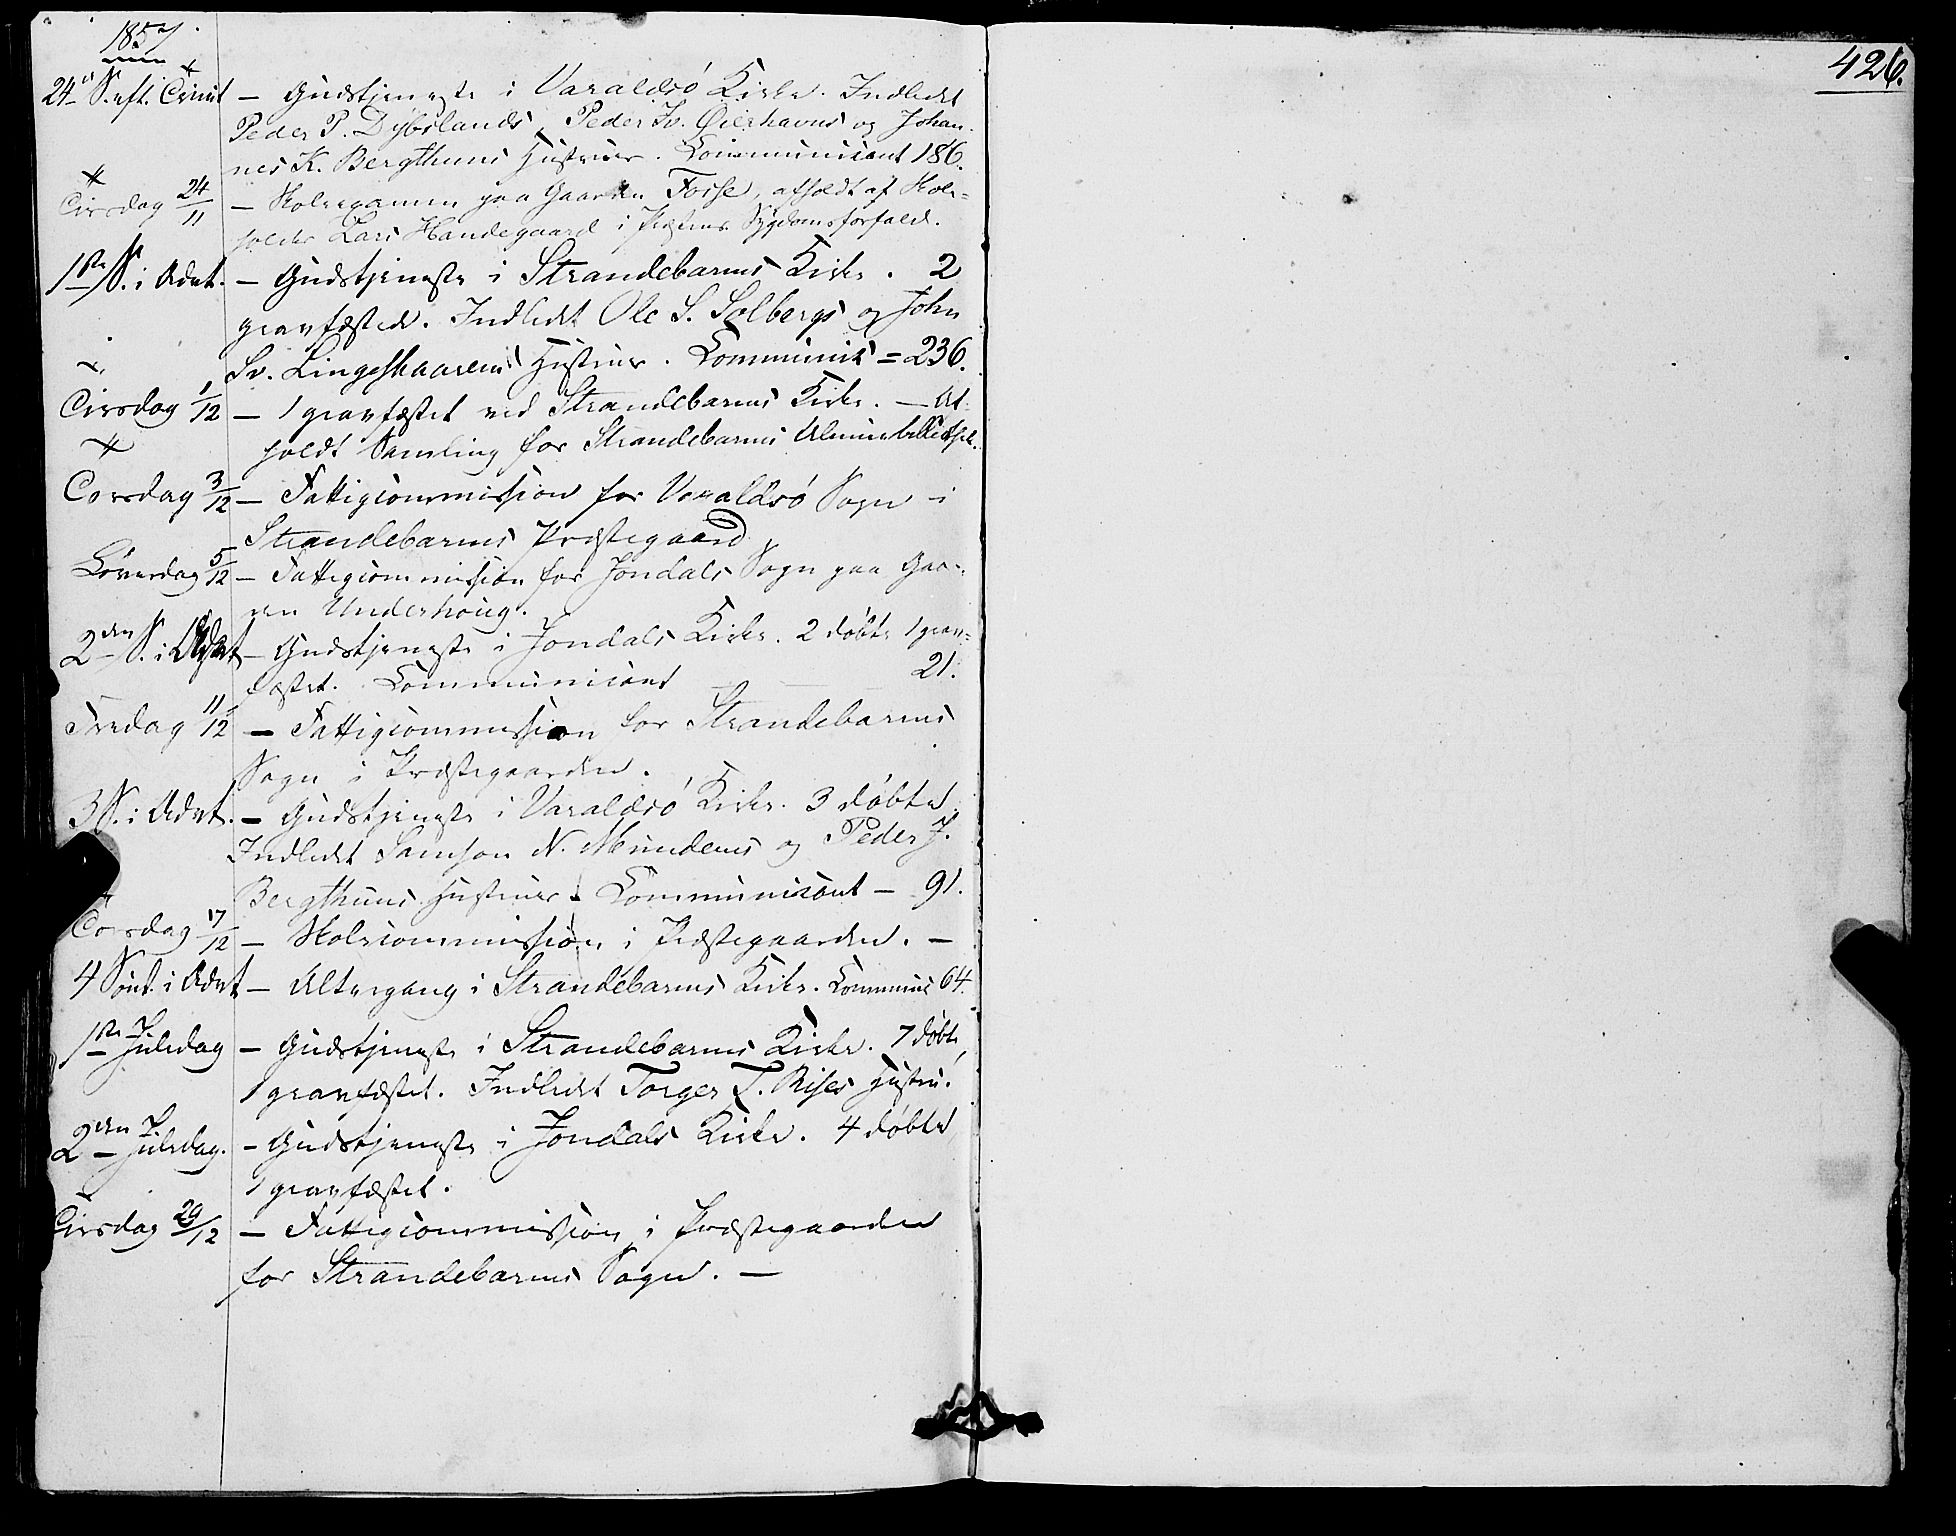 1857.
24 S. eft. Trinit – Gudstjeneste i Varaldsö Kirke. Indledet
Peder P. Dybslands, Peder Iv. Öierhavns og Johan-
nes K. Bergthuns Hustruer. Communicant 186.
Tirsdag 24/11 – Skoleexamen paa Gaarden Fosse, afholdt af Skole-
holder Lars Handegaard i Præstens Sygdomsforfald.
1ste S. i Advt. – Gudstjeneste i Strandebarms Kirke. 2
gravfæstede. Indledet Ole S. Solbergs og John
Sv. Lingeskaarens Hustruer. Communic = 236.
Tirsdag 1/12 – 1 gravfæstet ved Strandebarms Kirke. – Af-
holdt Samling for Strandebarms
Torsdag 3/12 – Fattigcommission for Varaldsö Sogn i
Strandebarms Præstegaard
Löverdag 5/12 – Fattigcommission for Jondals Sogn paa Gaa-
en Underhoug.
2den S. i Advt – Gudstjeneste i Jondals Kirke. 2 döbte 1 grav-
fæstet. Communicant 21.
Fredag 11/12 – Fattigcommission for Strandebarms
Sogn i Præstegaarden.
3 S. i Advt. – Gudstjeneste i Varaldsö Kirke. 3 döbte.
Indledet Samson N. Mundems og Peder J.
Bergthuns Hustruer. Communicant – 91.
Torsdag 17/12 – Skolecommission i Præstegaarden. –
4 Sönt. i Advt – Altergang i Strandebarms Kirke. Communic 64.
1ste Juledag – Gudstjeneste i Strandebarms Kirke. 7 döbte,
1 gravfæstet. Indledet Torger T. Rises Hustru.
2den Juledag. – Gudstjeneste i Jondals Kirke. 4 döbte,
1 gravfæstet.
Tirsdag 29/12 – Fattigcommission i Præstegaarden
for Strandebarms Sogn. –
426.